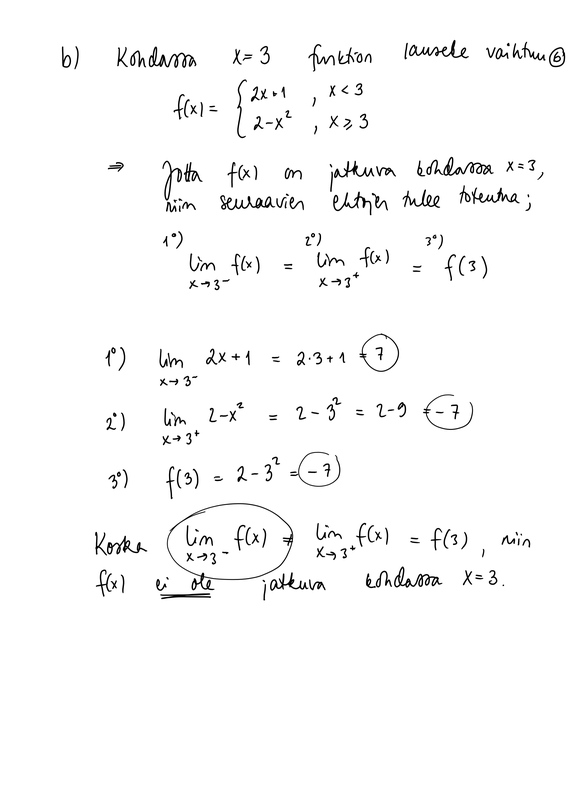 b) Kohdassa x=3 funktion lauseke vaihtuu ⑥
f(x) = { 2x+1 , x < 3
2-x² , x ≥ 3
⇒ Jotta f(x) on jatkuva kohdassa x=3,
niin seuraavien ehtojen tulee toteutua;
1°) 2°) 3°)
lim x→3⁻ f(x) = lim x→3⁺ f(x) = f(3)
1°) lim x→3⁻ 2x+1 = 2·3+1 = 7
2°) lim x→3⁺ 2-x² = 2-3² = 2-9 = -7
3°) f(3) = 2-3² = -7
Koska lim x→3⁻ f(x) ≠ lim x→3⁺ f(x) = f(3), niin
f(x) ei ole jatkuva kohdassa x=3.